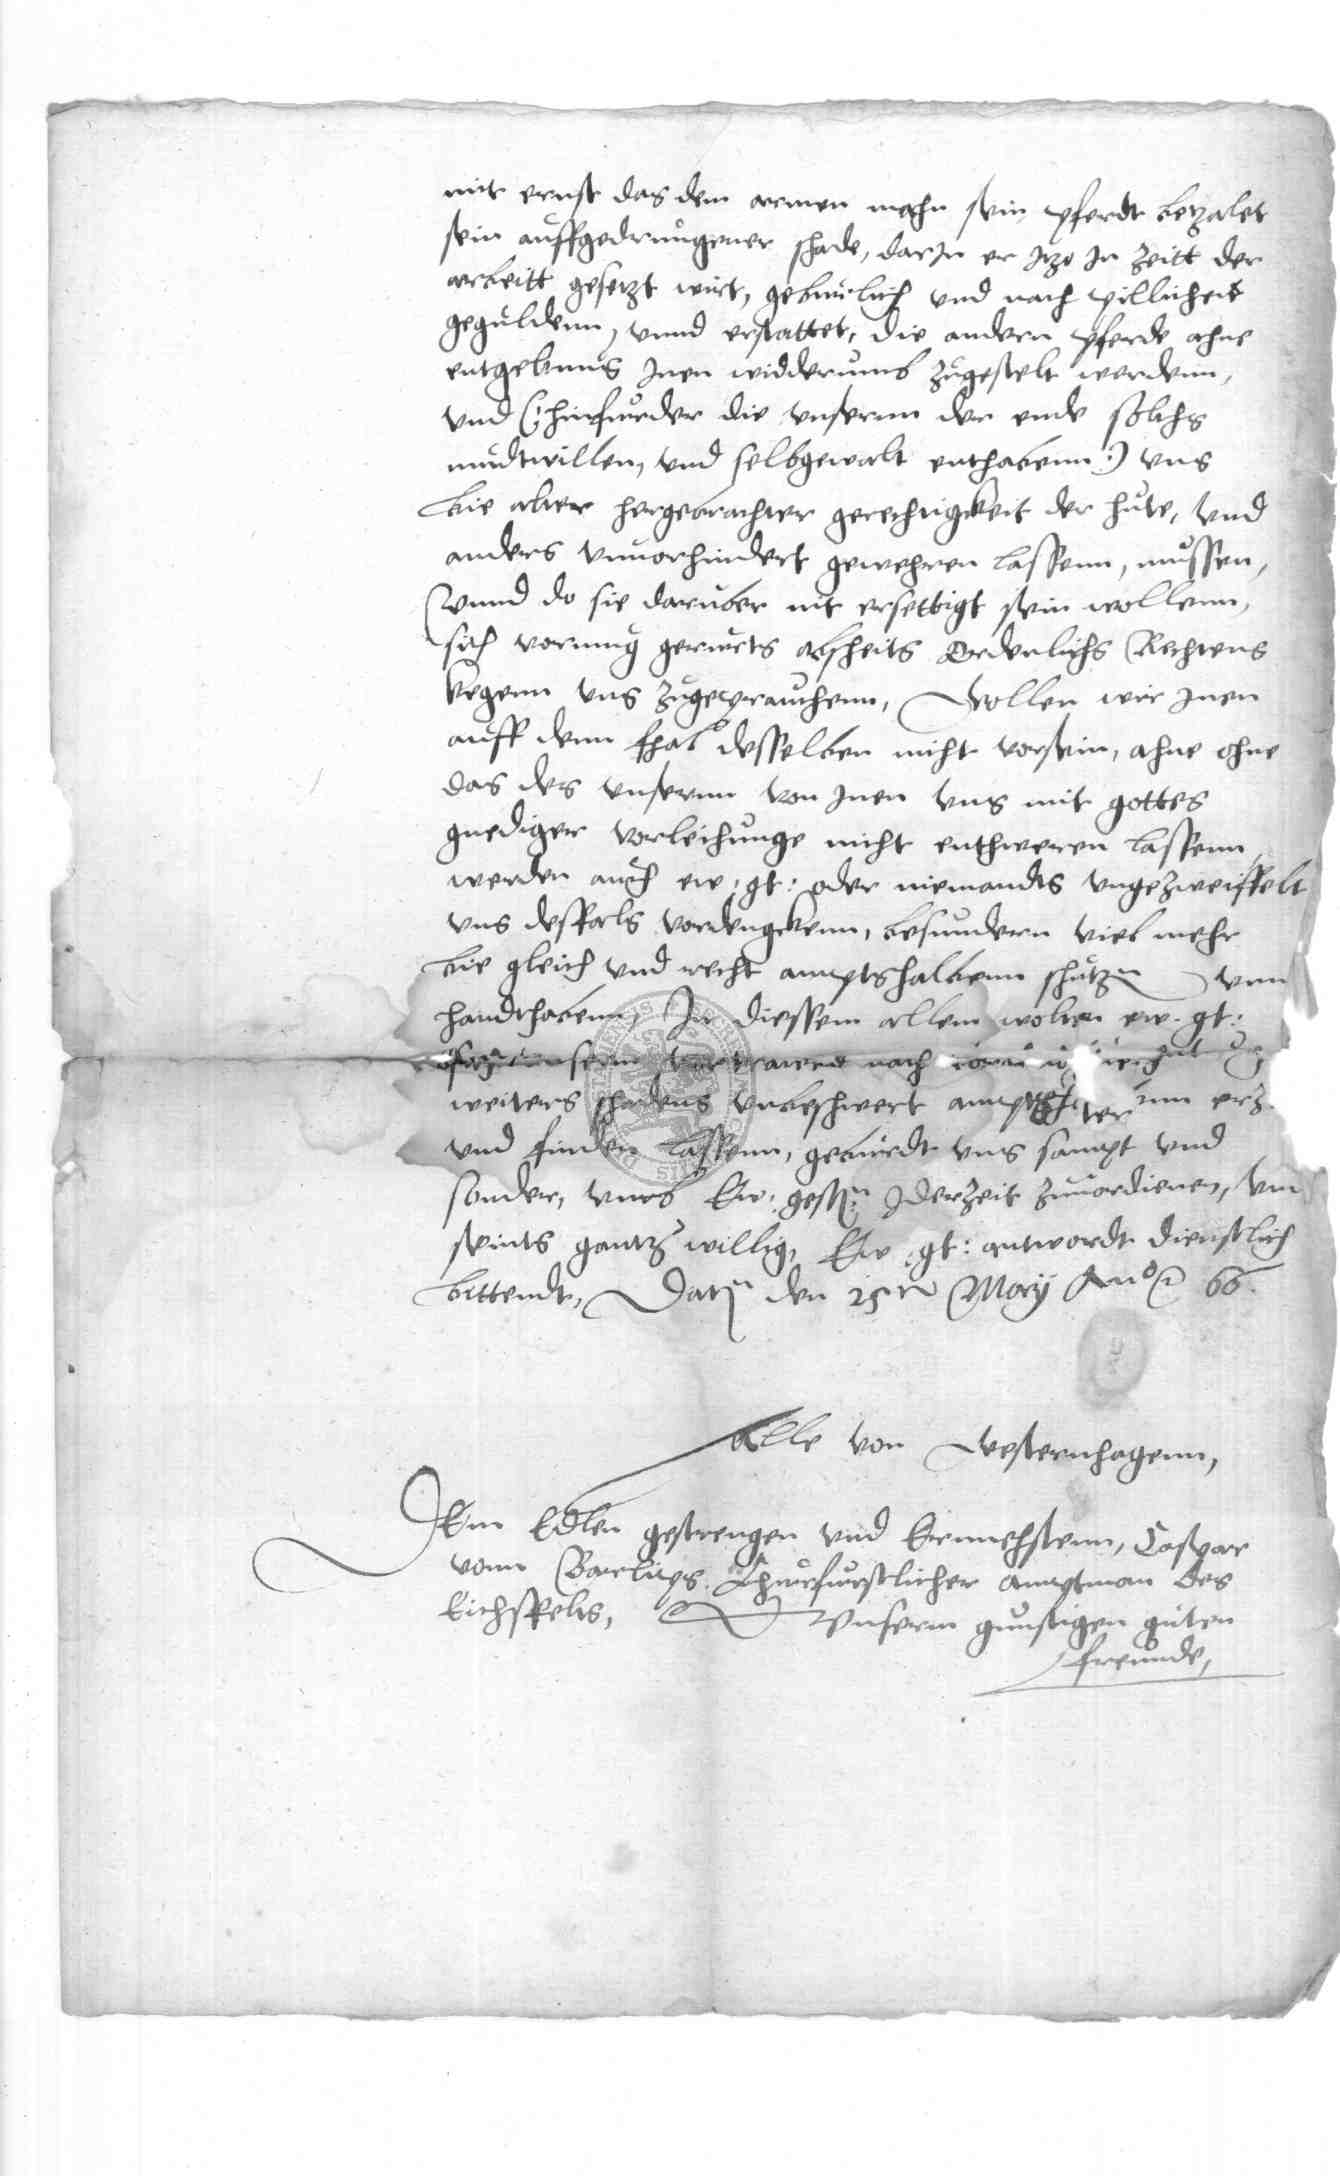 mit ernst das dem armen mahn sein pferdt betzalet
sein auffgedrungener schade, darIn er Itzo In zeitt der
arbeitt gesetzt wirt, geburlich vnd nach pillicheit
geguldenn, vnnd erstattet, die andern pferde ohne
entgeltnus Inen widderumb zugestelt werdenn,
vnd (: hinfurder die vnsernn der ende solchs
mudtwillen, vnd selbgewalt enthabenn :) vns
bie alter hergebrachter gerechtigkeit der hute, vnd
anders vnuorhindert gewehren lassenn, mussen,
Vnnd do sie daruber nit ersettigt sein wollenn,
sich vormug abscheits Ordenlichs Rechtens
kegenn vns zugeprauchenn, Wollen wir Inen
auff denn fhal desselben nicht vorsein, ahne ohne
das des vnsernn von Inen vns mit gottes
gnediger vorleihunge nicht enthweren lassenn
werden auch ew: gt: oder niemandts vngezweiffelt
vns desfals vordengkenn, besundern viel mehr
bie gleich vnd recht amptshalbenn schutzn vnn
handthabenn, In diessem allem wolten ew. gt:
nach
weiters schadens vnbeschwert
vnd finden lassenn, geburdt vns sampt vnd
sonder, vmb Ew: gestr: Iderzeit zuuordienen, vnn
seints gantz willig, Ew: gt: antwordt dienstlich
bittendt, Datum den 25ten May Anno 66.
Alle von Westernhagenn,
Dem Edlen gestrengen vnd Ernuehstenn, Caspar
vonn Barlips Churfurstlicher amptman des
Eichsfelts, Vnserm gunstigen guten
freunde,